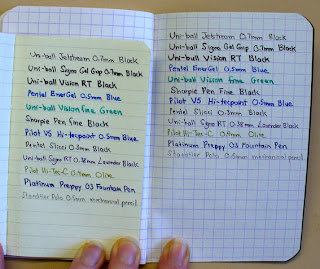 Uni-ball Jetstream 0.7mm Black
Uni-ball Signo Gel Grip 0.7mm Black
Uni-ball Vision RT Black
Pentel EnerGel 0.5mm Blue
Uni-ball Vision Fine Green
Sharpie Pen Fine Black
Pilot V5 Hi-tecpoint 0.5mm Blue
Pentel Slicci 0.3mm Black
Uni-ball Signo RT 0.38mm Lavender Black
Pilot Hi-Tec-C 0.4mm Olive
Platinum Preppy 03 Fountain Pen
Staedtler Polo 0.5mm mechanical pencil
Uni-ball Jetstream 0.7mm Black
Uni-ball Signo Gel Grip 0.7mm Black
Uni-ball Vision RT Black
Pentel EnerGel 0.5mm Blue
Uni-ball Vision Fine Green
Sharpie Pen Fine Black
Pilot V5 Hi-tecpoint 0.5mm Blue
Pentel Slicci 0.3mm Black
Uni-ball Signo RT 0.38mm Lavender Black
Pilot Hi-Tec-C 0.4mm Olive
Platinum Preppy 03 Fountain Pen
Staedtler 0.5mm mechanical pencil